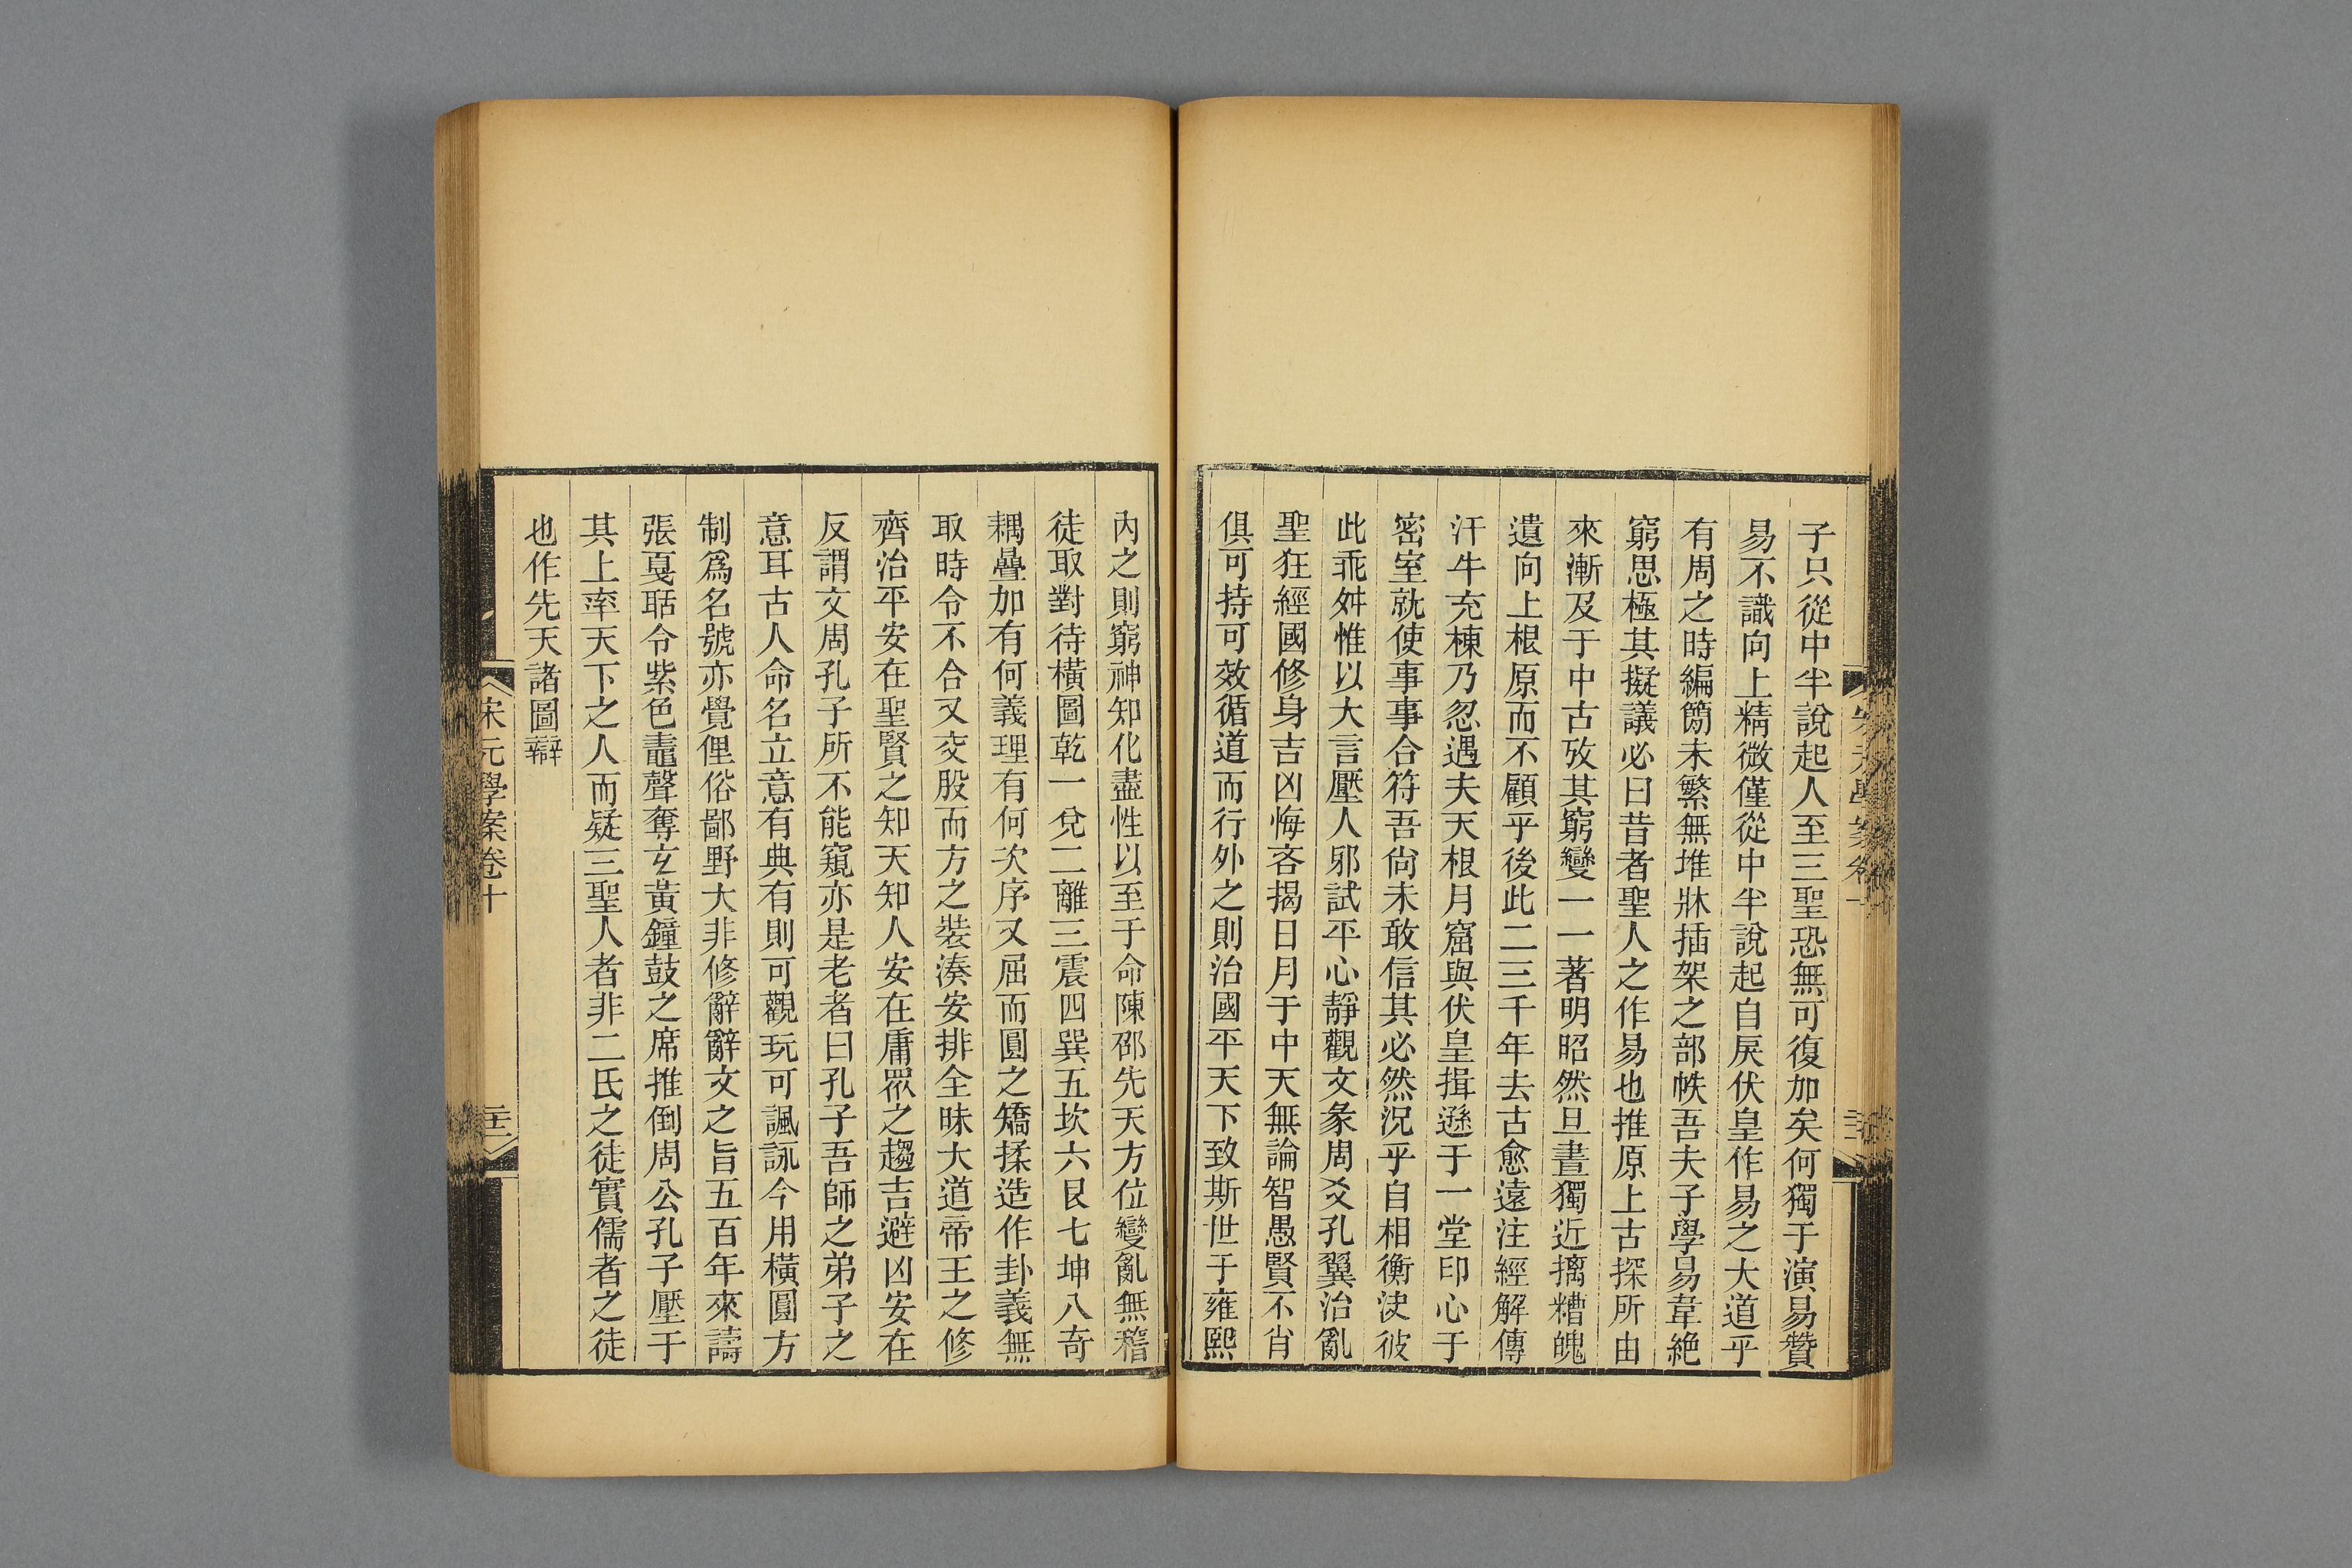 子只從中半說起人至三聖恐無可復加矣何獨于演易贊
易不識向上精微僅從中半說起自戾伏皇作易之大道乎
有周之時編簡未繁無堆牀插架之部帙吾夫子學易韋絕
窮思極其擬議必曰昔者聖人之作易也推原上古探所由
來漸及于中古攷其窮變一一著明昭然旦晝獨近摛糟魄
遺向上根原而不顧乎後此二三千年去古愈遠注經解傳
汗牛充棟乃忽遇夫天根月窟與伏皇揖遜于一堂印心于
密室就使事事合符吾尙未敢信其必然況乎自相衡決彼
此乖舛惟以大言壓人邪試平心靜觀文彖周爻孔翼治亂
聖狂經國修身吉凶悔吝揭日月于中天無論智愚賢不肖
俱可持可效循道而行外之則治國平天下致斯世于雍熙
內之則窮神知化盡性以至于命陳邵先天方位變亂無稽
徒取對待橫圖乾一兌二離三震四巽五坎六艮七坤八奇
耦疊加有何義理有何次序又屈而圓之矯揉造作卦義無
取時令不合又交股而方之裝湊安排全昧大道帝王之修
齊治平安在聖賢之知天知人安在庸眾之趨吉避凶安在
反謂文周孔子所不能窺亦是老者曰孔子吾師之弟子之
意耳古人命名立意有典有則可觀玩可諷詠今用橫圓方
制爲名號亦覺俚俗鄙野大非修辭辭文之旨五百年來譸
張戛聒令紫色鼃聲奪玄黃鐘鼓之席推倒周公孔子壓于
其上率天下之人而疑三聖人者非二氏之徒實儒者之徒
也作先天諸圖辯
宋元學案卷十